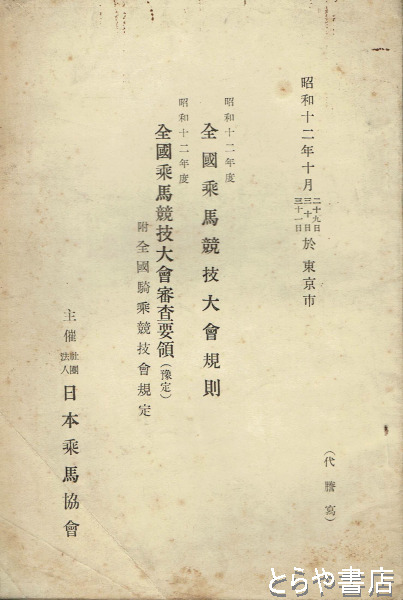 (代謄寫)
昭和十二年十月二十九日三十日三十一日於東京市
昭和十二年度
全國乘馬競技大會規則
昭和十二年度
全國乘馬競技大會審査要領(豫定)
附全國騎乘競技會規定
主催社團法人日本乘馬協會
とらや書店